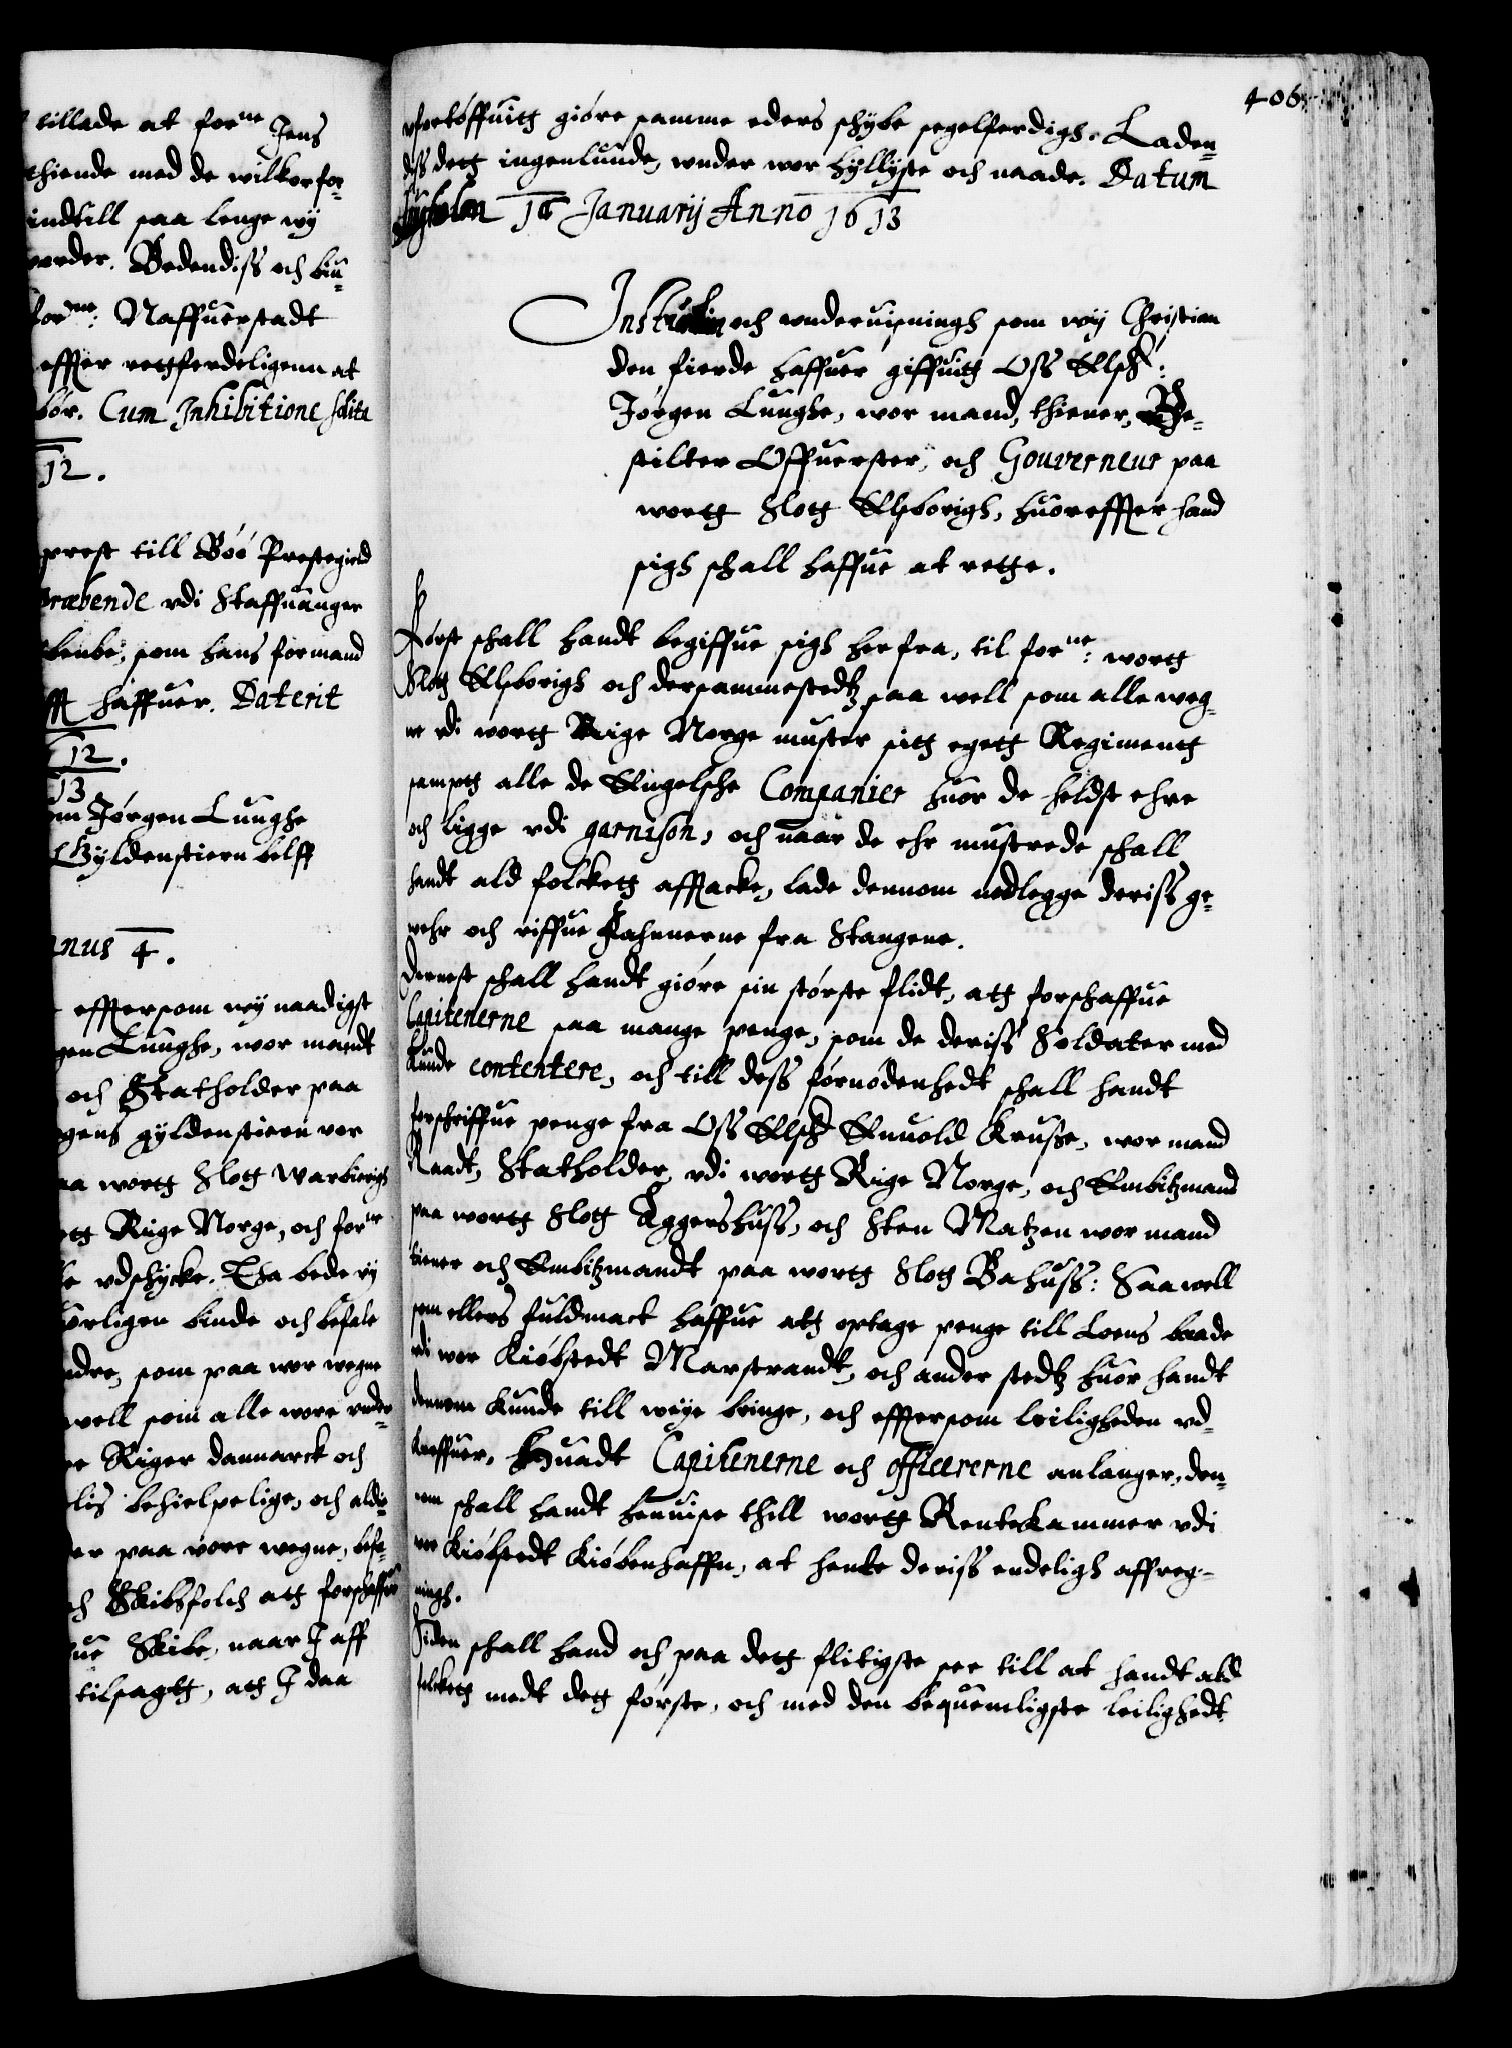 tillade at forne Jens
thiende med de wilkor for¬
indtill saa lenge wy
worder. Bedendiss och biu¬
forne: Naffuerstadt
effter rettferdeligenn at
bör. Cum Inhibitione solita
12.
prest till Böö Prestegield
præbende vdi Staffuanger
benke, som hans formand
fft haffuer. Daterit
12.
13
om Jörgen Lunghe
Gyldenstiern belff
nus 4.
effttersom wy naadigst
gen Lunghe, wor mandt
och Statholder paa
gens gyldenstiern vor
aa wortt Slott Warbierigh
tt Rige Norge, och forne
ke vdschicke. Tha bede wy
uorligen binde och befale
ndre, som paa wor wegne
well som alle wore vnder
re Riger dannarck och
lis behielpelige, och aldie¬
er paa vore wegne, befa¬
ch Skibsfolch att forschaffue
ue Skibe, naar J aff
tilsagtt, att J daa
406.
vfortöffuitt giöre samme eders schibe segelferdigh. Laden¬
dis dett ingenlunde, wnder wor hyllyste och naade. Datum
18 Januarij Anno 1613
Instruction och vnderuisningh som wy Christian
den fierde haffuer giffuitt Oss Elsch:
Jörgen Lunghe, wor mand, thiener, Be¬
stilter Offuerster, och Gouverneur paa
wortt Slott Elsborigh, huoreffter hand
sigh schall haffue at rette.
Först schall handt begiffue sigh herfra, til forne: wortt
Slott Elsborigh och dersammestedtz saa well som alle weg¬
ne vdi wortt Rige Norge muster sitt egett Regimentt
sampt alle de Engelsche Companier huor de heldst ehre
och ligge vdi garnison, och naar de ehr mustrede schall
handt ald folckett afftacke, lade dennom nedlegge deriss ge¬
wehr och riffue Fahnnerne fra Stangene.
Dernest schall handt giöre sin störste flidt, att forschaffue
Capitenerne saa mange penge, som de deriss Soldater med
kunde contentere, och till dess fornödenhedt schall handt
forschriffue penge fra Oss Elsch Enuold Krusse, wor mand
Raadt, Statholder vdi wortt Rige Norge, och Embitzmand
paa wortt Slott Aggershuss, och Sten Matzen wor mand
tiener och Embitzmandt paa wortt Slott Bahuss: Saa well
som ellers fuldmact haffue att optage penge till Loens baade
vdi wor Kiöbstedt Marstrandt, och ander stedtz huor handt
dennom kunde till weye bringe, och effttersom leiligheden vd¬
kreffuer. Huadt Capitenerne och officererne anlanger, den¬
nom schall handt henuise thill wortt Rentekammer vdi
wor Kiöbstedt Kiöbenhaffn, at hente deriss endeligh affreg¬
ningh.
Siden schall hand och paa dett flitigste see till at handt ald
folckett medt dett förste, och med den bequemligste leilighedt